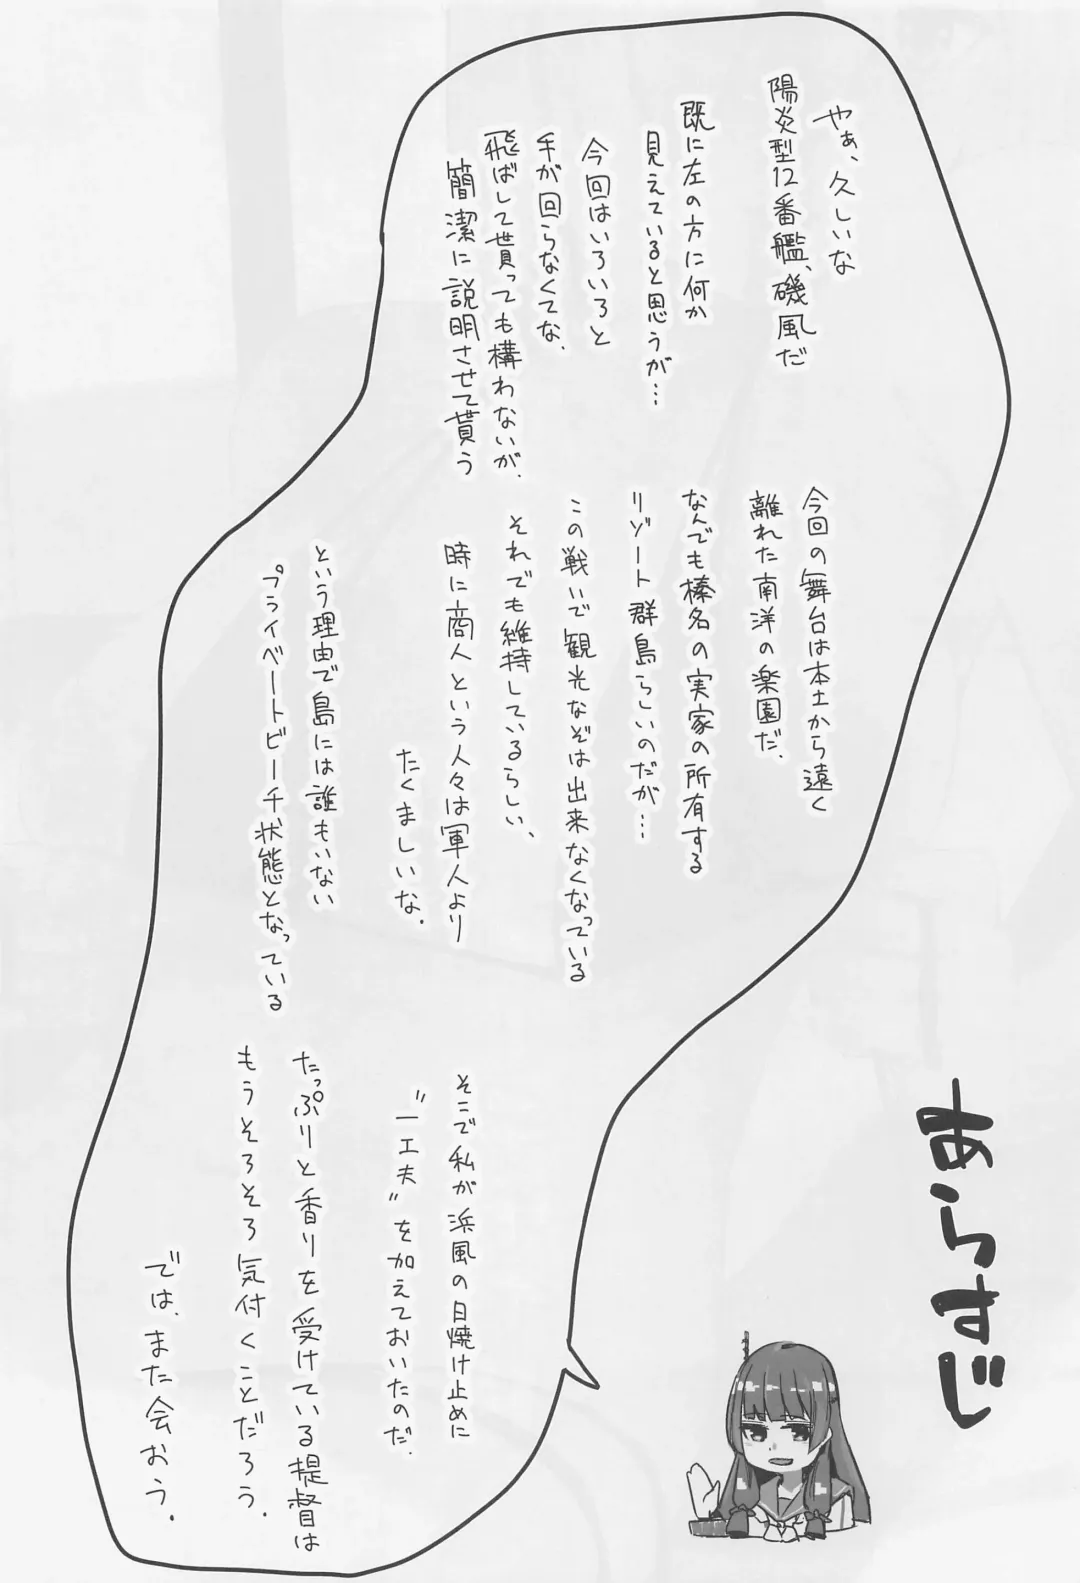 あらすじ
やぁ、久しいな
陽炎型12番艦、磯風だ
既に左の方に何か
見えていると思うが…
今回はいろいろと
手が回らなくてな、
飛ばして貰っても構わないが、
簡潔に説明させて貰う
今回の舞台は本土から遠く
離れた南洋の楽園だ、
なんでも榛名の実家の所有する
リゾート群島らしいのだが…
この戦いで観光なぞは出来なくなっている
それでも維持しているらしい、
時に商人という人々は軍人より
たくましいな.
という理由で島には誰もいない
プライベートビーチ状態となっている
そこで私が浜風の日焼け止めに
“一工夫”を加えておいたのだ.
たっぷりと香りを受けている提督は
もうそろそろ気付くことだろう.
では、また会おう.